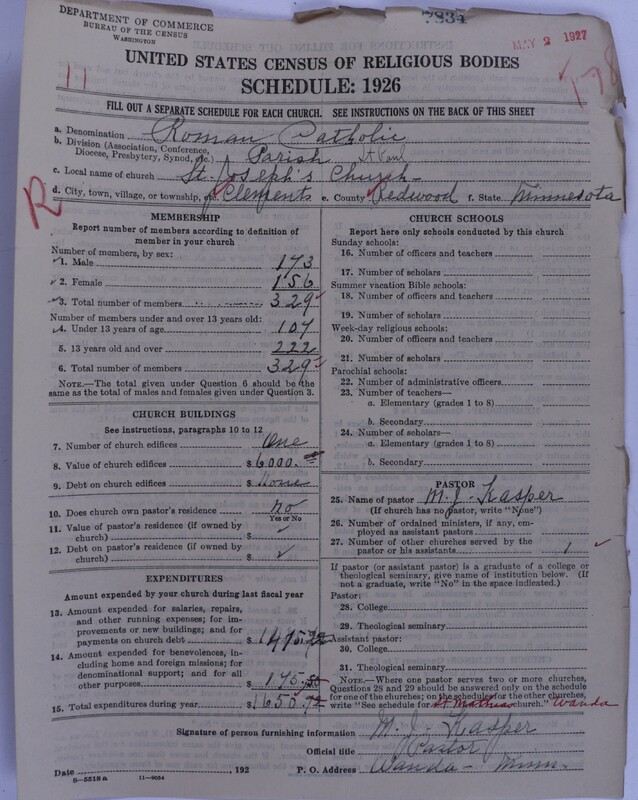 DEPARTMENT OF COMMERCE
BUREAU OF THE CENSUS
WASHINGTON
7834
MAY 2 1927
178
11
UNITED STATES CENSUS OF RELIGIOUS BODIES
SCHEDULE: 1926
FILL OUT A SEPARATE SCHEDULE FOR EACH CHURCH. SEE INSTRUCTIONS ON THE BACK OF THIS SHEET
a. Denomination Roman Catholic
b. Division (Association, Conference, Diocese, Presbytery, Synod, etc.) Parish St Paul
c. Local name of church St. Joseph's Church
d. City, town, village, or township, etc. Clements e. County Redwood f. State Minnesota
R
MEMBERSHIP
Report number of members according to definition of
member in your church
Number of members, by sex:
1. Male 173
2. Female 156
3. Total number of members 329
Number of members under and over 13 years old:
4. Under 13 years of age 107
5. 13 years old and over 222
6. Total number of members 329
NOTE.—The total given under Question 6 should be the
same as the total of males and females given under Question 3.
CHURCH BUILDINGS
See instructions, paragraphs 10 to 12
7. Number of church edifices One
8. Value of church edifices $ 6000.
9. Debt on church edifices $ None
10. Does church own pastor's residence No
Yes or No
11. Value of pastor's residence (if owned by
church) $ ✓
12. Debt on pastor's residence (if owned by
church) $ ✓
EXPENDITURES
Amount expended by your church during last fiscal year
13. Amount expended for salaries, repairs,
and other running expenses; for im-
provements or new buildings; and for
payments on church debt $ 1475.
14. Amount expended for benevolences, in-
cluding home and foreign missions; for
denominational support; and for all
other purposes $ 175.
15. Total expenditures during year $ 1650.
CHURCH SCHOOLS
Report here only schools conducted by this church
Sunday schools:
16. Number of officers and teachers
17. Number of scholars
Summer vacation Bible schools:
18. Number of officers and teachers
19. Number of scholars
Week-day religious schools:
20. Number of officers and teachers
21. Number of scholars
Parochial schools:
22. Number of administrative officers
23. Number of teachers—
a. Elementary (grades 1 to 8)
b. Secondary
24. Number of scholars—
a. Elementary (grades 1 to 8)
b. Secondary
PASTOR
25. Name of pastor M. J. Kasper
(If church has no pastor, write "None")
26. Number of ordained ministers, if any, em-
ployed as assistant pastors
27. Number of other churches served by the
pastor or his assistants 1
If pastor (or assistant pastor) is a graduate of a college or
theological seminary, give name of institution below. (If
not a graduate, write "No" in the space indicated.)
Pastor:
28. College
29. Theological seminary
Assistant pastor:
30. College
31. Theological seminary
NOTE.—Where one pastor serves two or more churches,
Questions 28 and 29 should be answered only on the schedule
for one of the churches; on the schedules for the other churches,
write "See schedule for St Mathias church." Wanda
Signature of person furnishing information M. J. Kasper
Official title Pastor
Date 192 P. O. Address Wanda - Minn.
8—5518a 11—9054